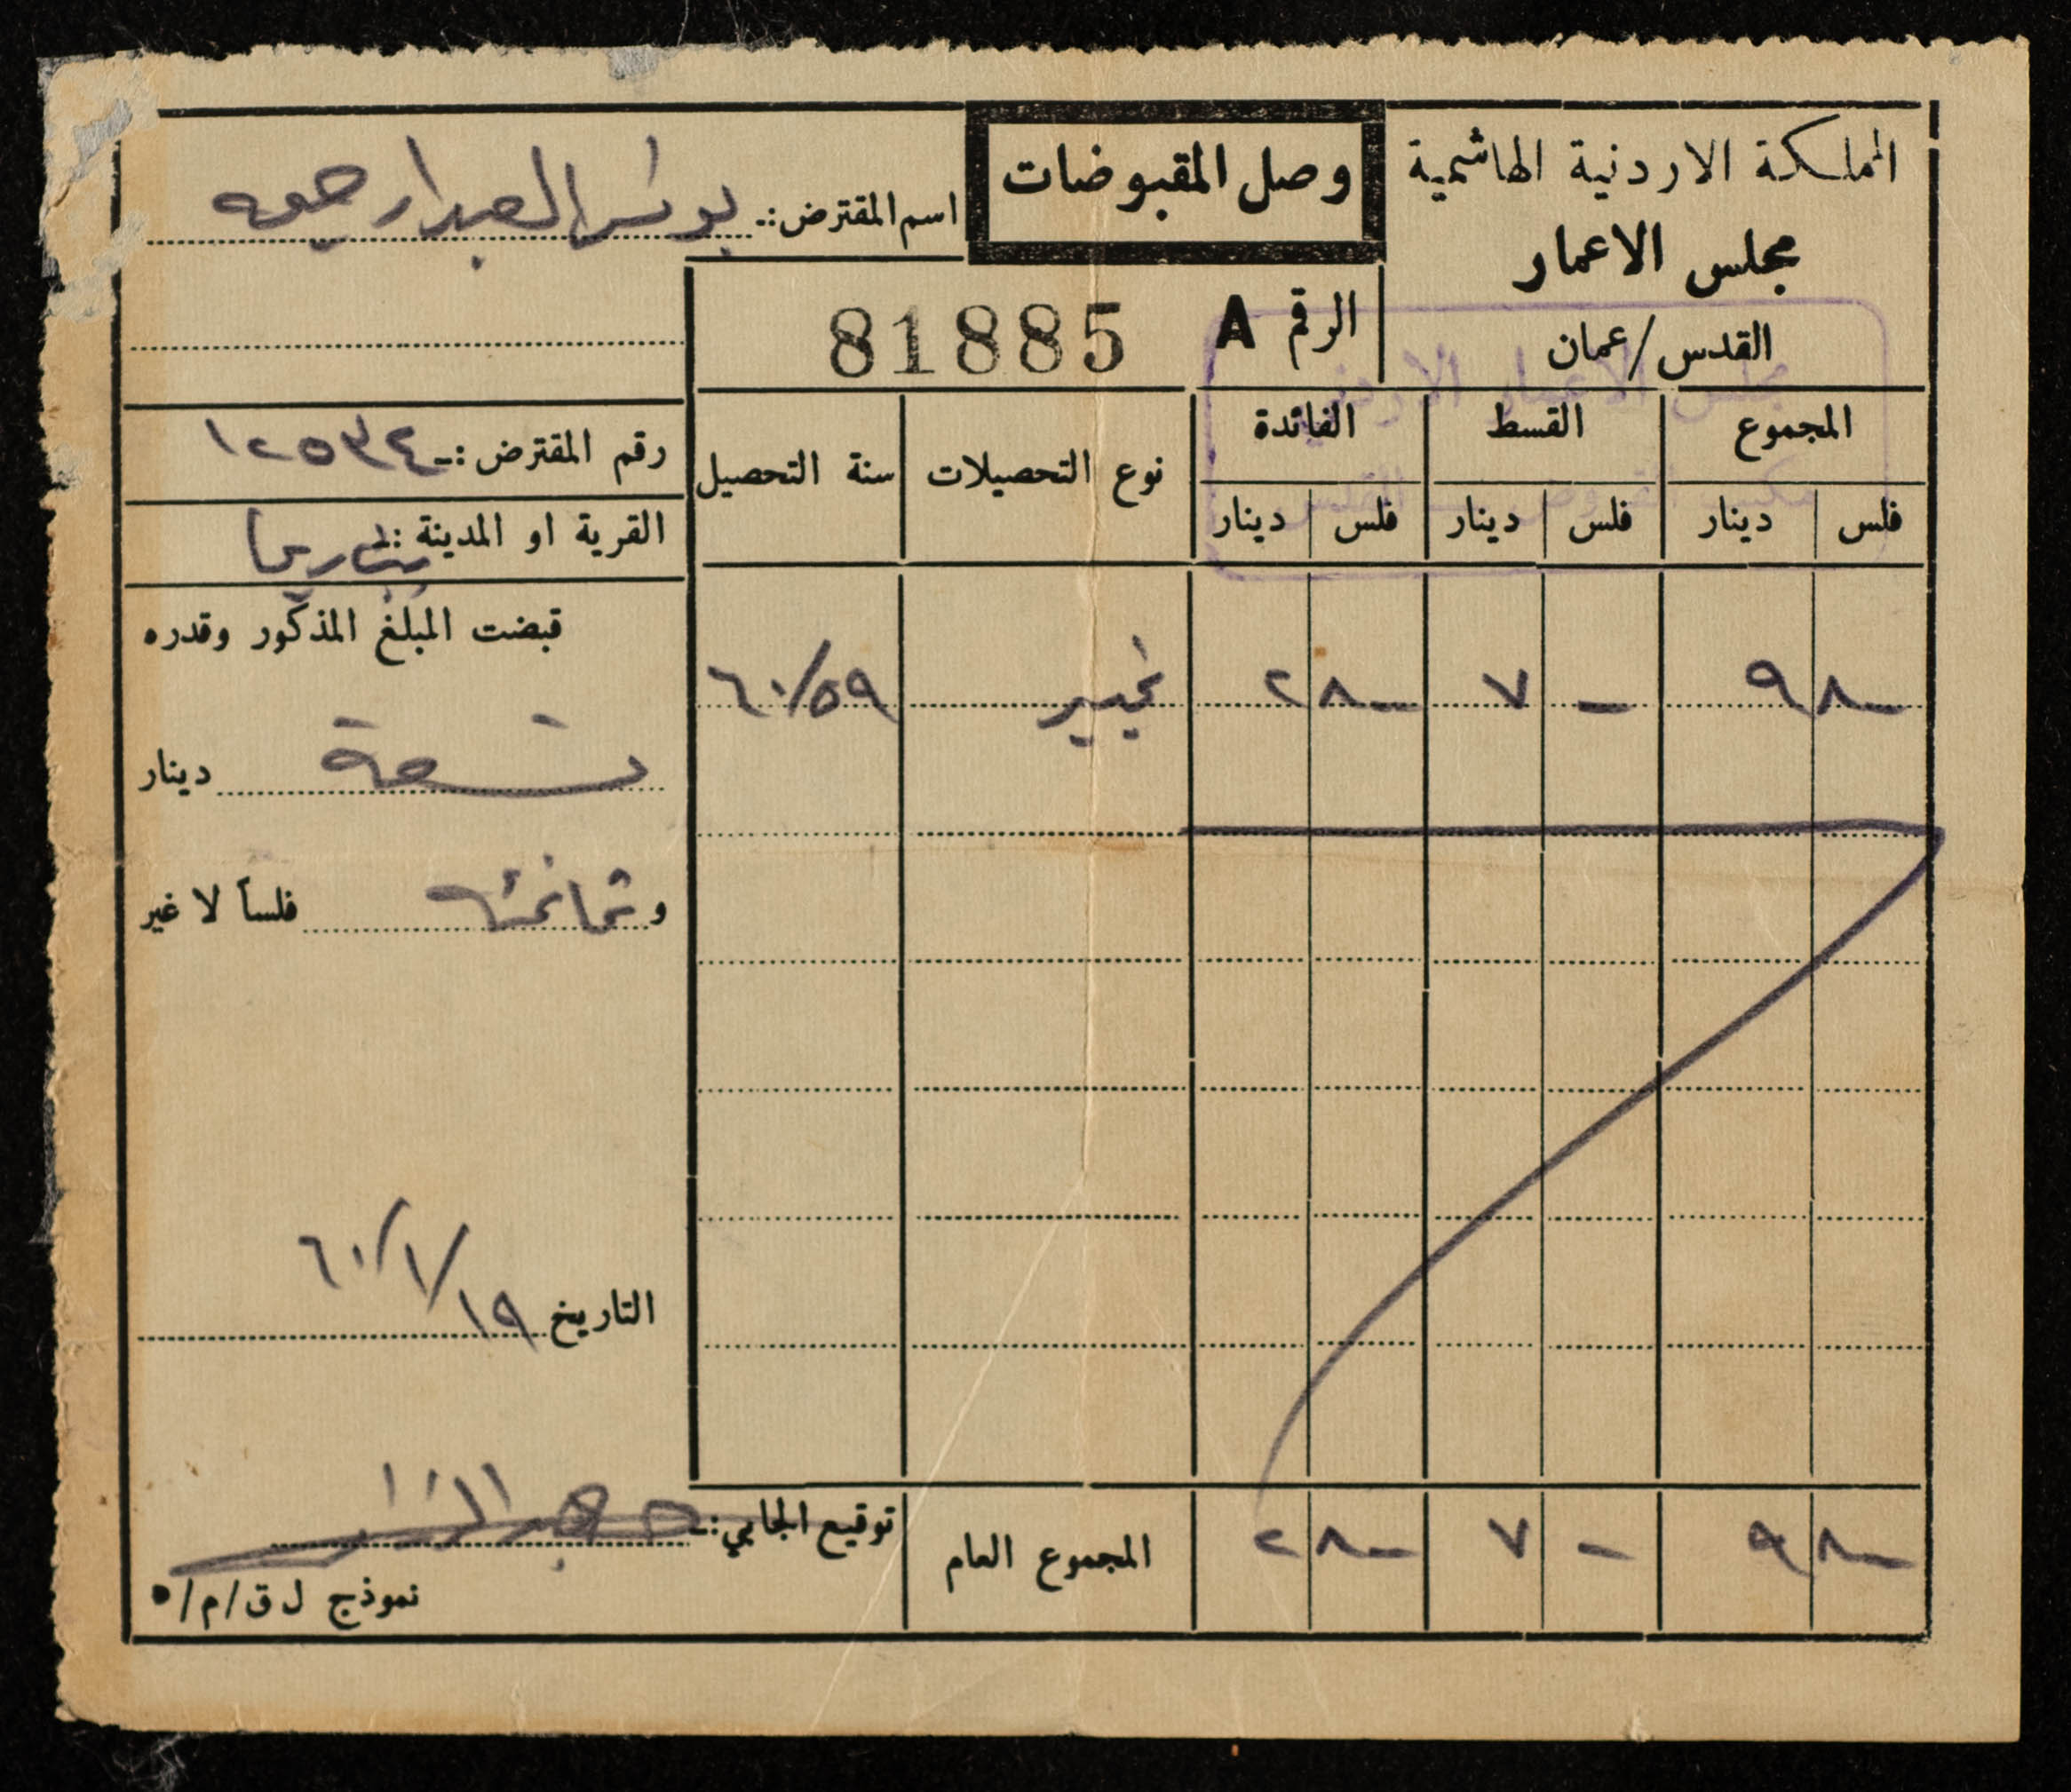 المملكة الاردنية الهاشمية
مجلس الاعمار
القدس/عمان
وصل المقبوضات
الرقم A 81885
اسم المقترض:-
رقم المقترض:- ١٢٥٣٤
القرية او المدينة:-
قبضت المبلغ المذكور وقدره
تسعة دينار
و ثمانمئه فلساً لا غير
التاريخ ٦٠/١/١٩
المجموع القسط الفائدة نوع التحصيلات سنة التحصيل
فلس دينار فلس دينار فلس دينار
٩ ٨٠٠ ٧ - ٢ ٨٠٠ ٦٠/٥٩
٩ ٨٠٠ ٧ - ٢ ٨٠٠ المجموع العام
توقيع الجابي:-
نموذج ل ق/م/٥